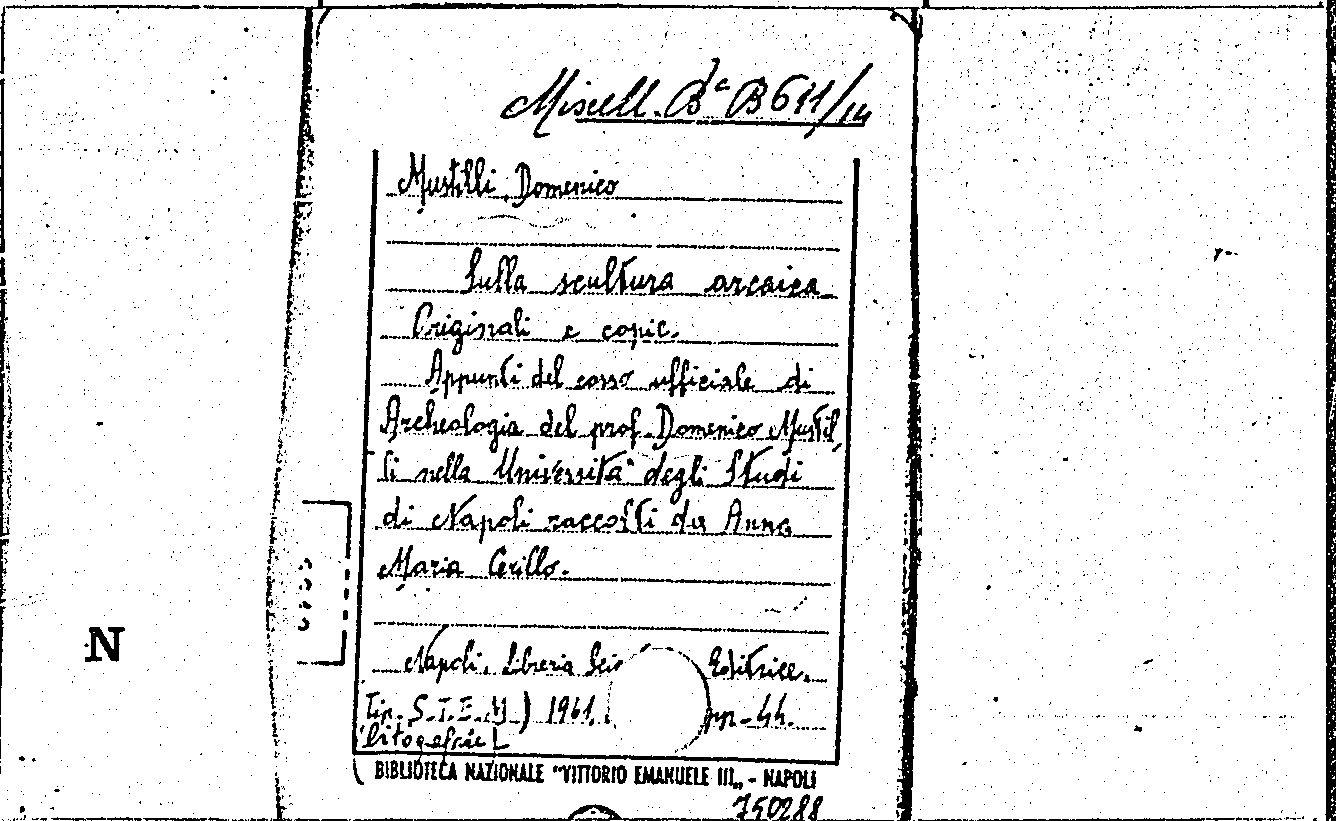 Miscell. Bª B 611/14
Mustilli, Domenico
Sulla scultura arcaica
Originali e copie.
Appunti del corso ufficiale di
Archeologia del prof. Domenico Mustil
li nella Università degli Studi
di Napoli raccolti da Anna
Maria Cerillo.
N
Napoli, Libreria Scie Editrice,
Tip. S.T.E.M.) 1961. pp. 44.
BIBLIOTECA NAZIONALE "VITTORIO EMANUELE III„ - NAPOLI
750288